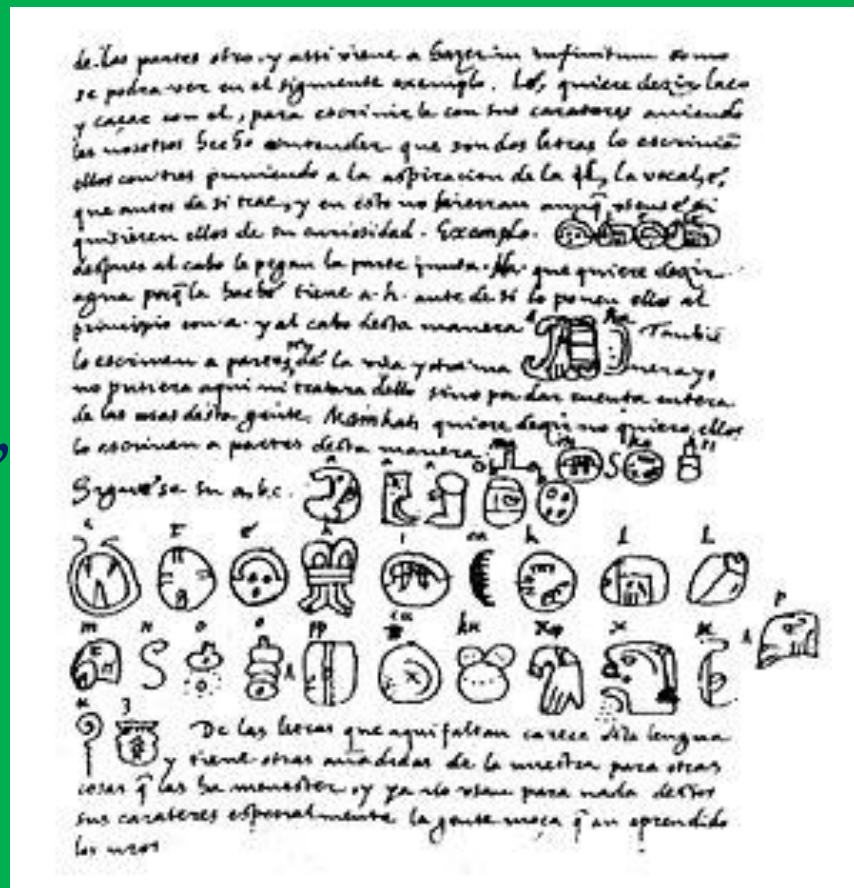 de las partes otro, y assi viene a hazer in infinitum como
se podra ver en el siguiente exemplo. Lé, quiere dezir laço
y caçar con el, para escrivirle con sus carateres aviendo
les nosotros hecho entender que son dos letras lo escrivian
ellos con tres puniendo a la aspiracion de la l, la vocal, e,
que antes de si trae, y en esto no hierran
quisieren ellos de su curiosidad. Exemplo.
despues al cabo le pegan la parte junta. Ha. que quiere dezir
agua porq̃ la hache tiene a. h. ante de si lo ponen ellos al
principio con a. y al cabo desta manera a ha Tambiẽ
lo escriven a partes de la una y otra ma nera yo
no pusiera aqui ni tratara dello sino por dar cuenta entera
de las cosas desta gente. Mainkati quiere dezir no quiero, ellos
lo escriven a partes desta manera. ma i n ka ti
Siguese su a, b, c. a a a b b
c t e h i ca k l l
m n o o pp cu ku x x u p
u z De las letras que aqui faltan carece esta lengua
y tiene otras añadidas de la nuestra para otras
cosas q̃ las ha menester, y ya no usan para nada destos
sus carateres especialmente la gente moça q̃ an aprendido
los nros